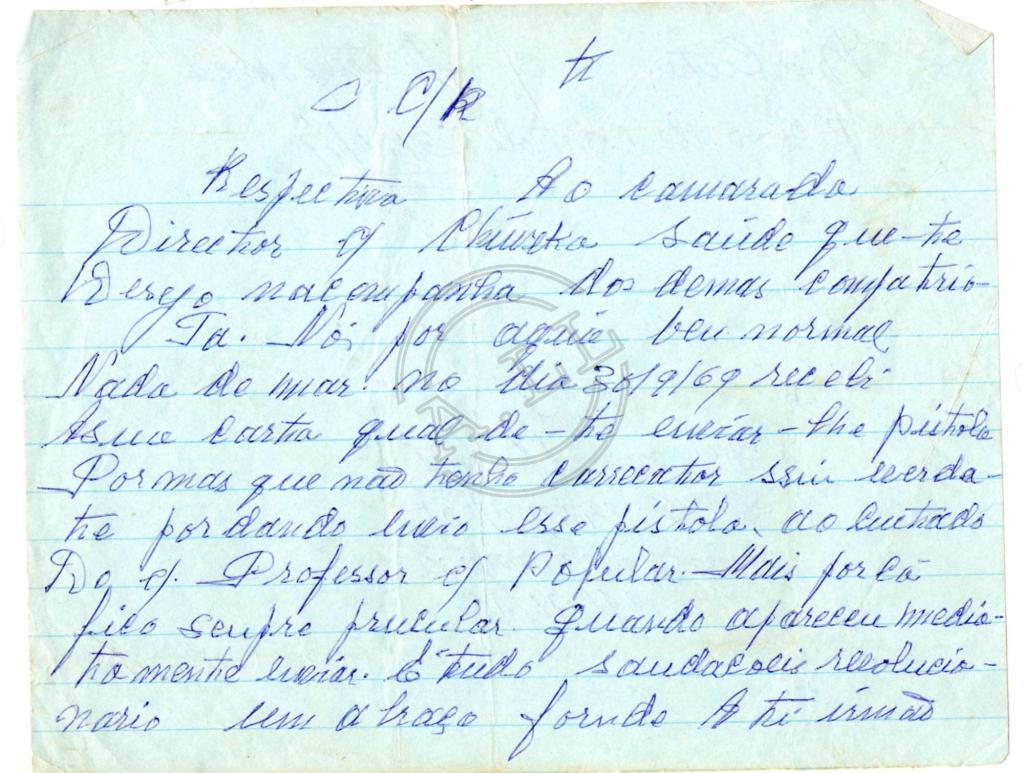 C/R
Respectiva Ao camarada
Director cj Chiweka saúde que-te
Desejo nacompanha dos demas compatrio-
Ta. Nós por aquia beu normal
Nada de miar. no dia 30/9/69 recebi
Asua carta qual de-te enviar-lhe pistola
Por mas que não tenho carrecator ssiu
te por dando envio esse pistola ao cunhado
Do cj. Professor cj Popular. Mais por cá
fico senpre prucular. quando apareceu media-
tamente enviar. É tudo saudacoeis revolucio-
nario um abraço fornde A ti irmão